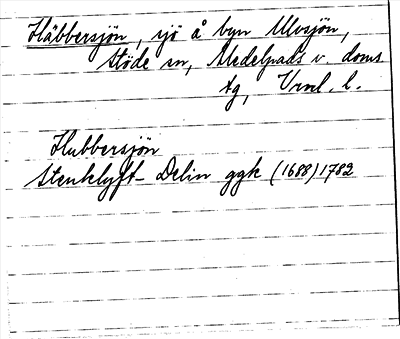 Häbbersjön, sjö å byn Ulvsjön,
Stöde sn, Medelpads v. doms
tg, Vrnl. l.
Hubbersjön
Stenklyft Delin ggk (1688) 1782